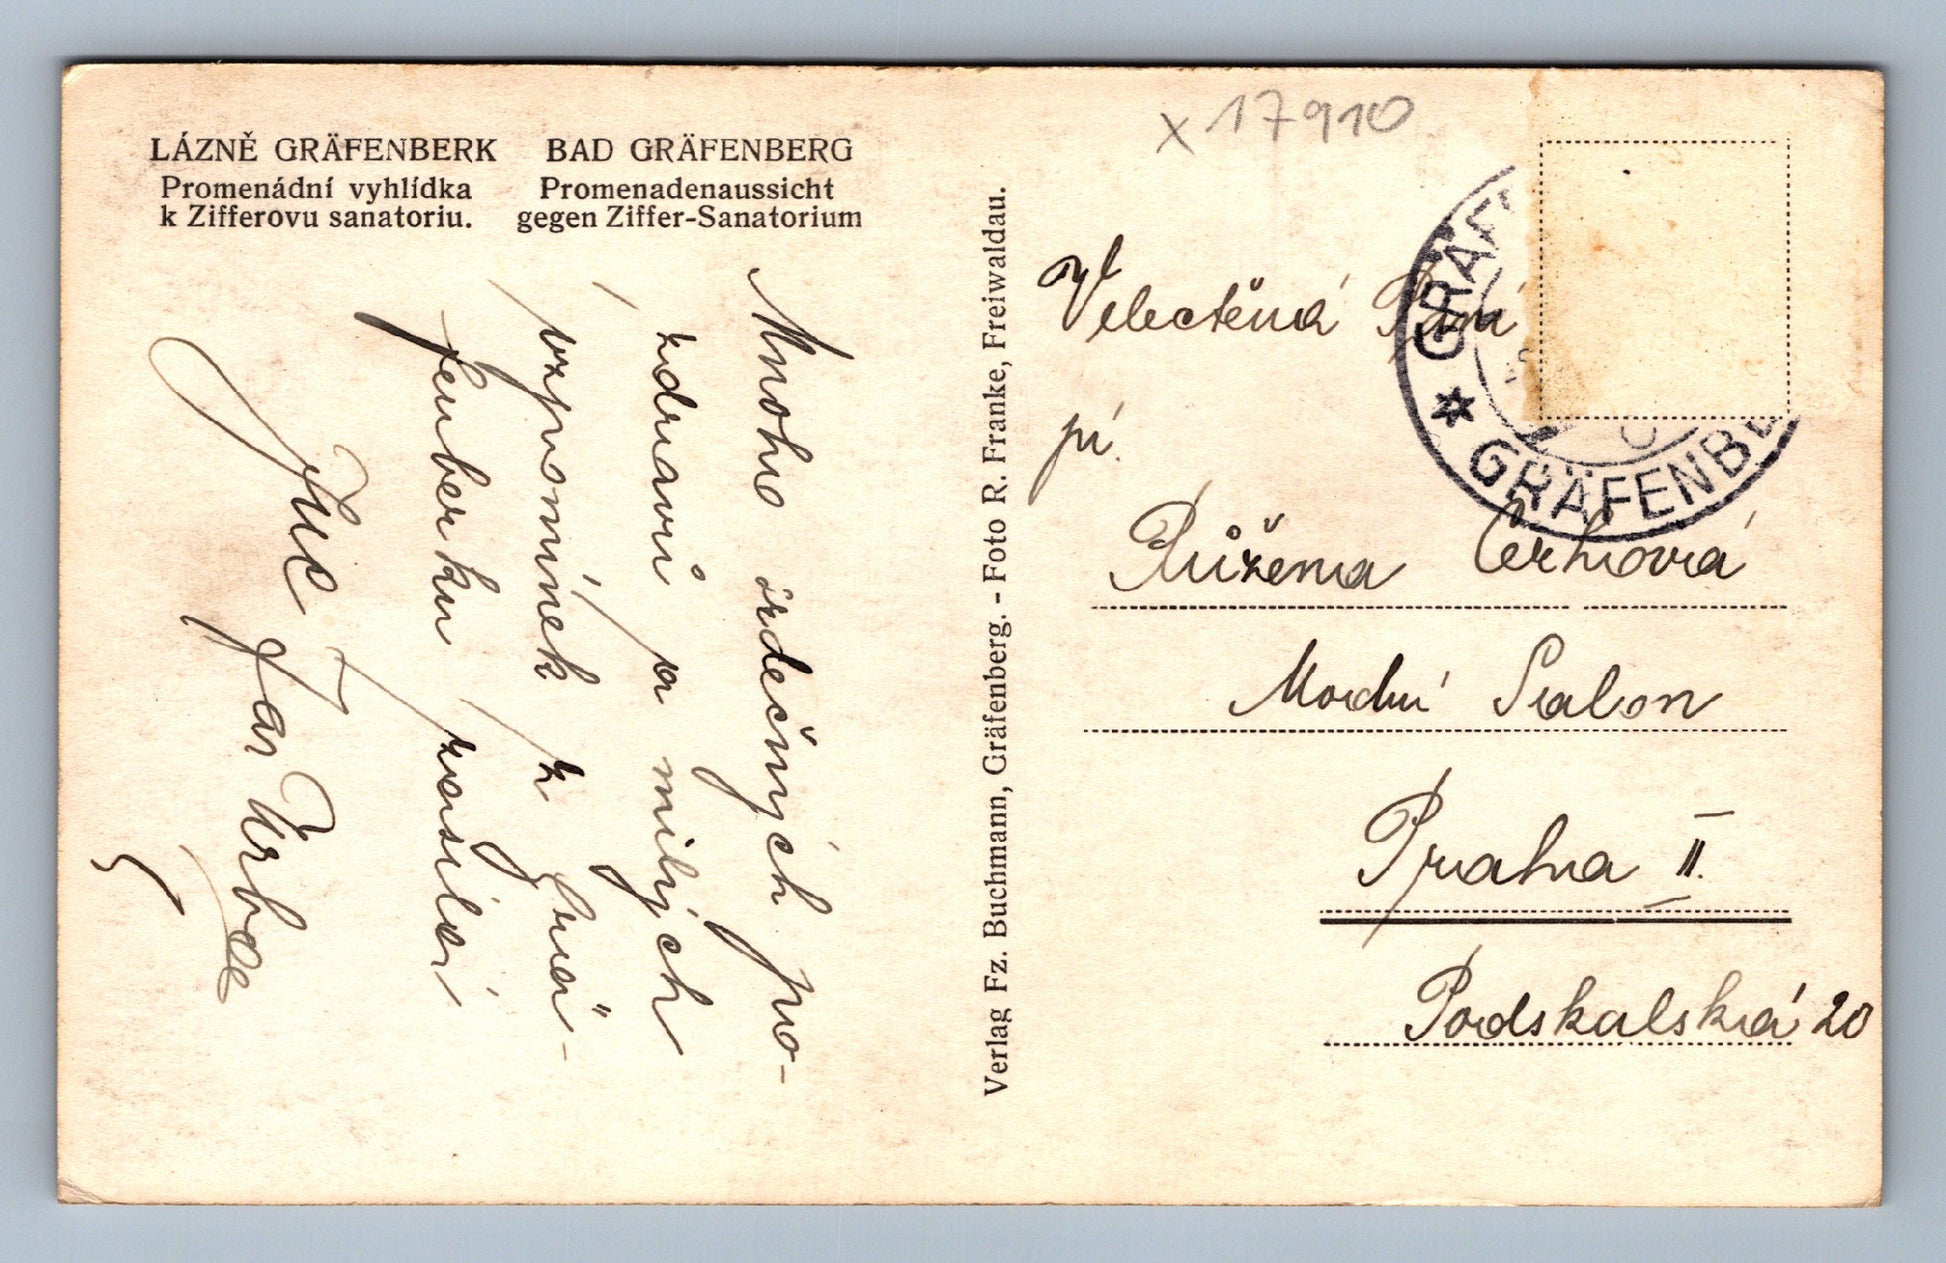 LÁZNĚ GRÄFENBERK
Promenádní vyhlídka
k Zifferovu sanatoriu.
BAD GRÄFENBERG
Promenadenaussicht
gegen Ziffer-Sanatorium
Mnoho srdečných po-
zdravů a milých
vzpomínek z Grä-
fenberku zasílá
Jar Urba
Verlag Fz. Buchmann, Gräfenberg. - Foto R. Franke, Freiwaldau.
x 17910
GRÄF
* GRÄFENBE
Velectěná Paní
pí.
Růžena Černová
Modní Salon
Praha II.
Podskalská 20